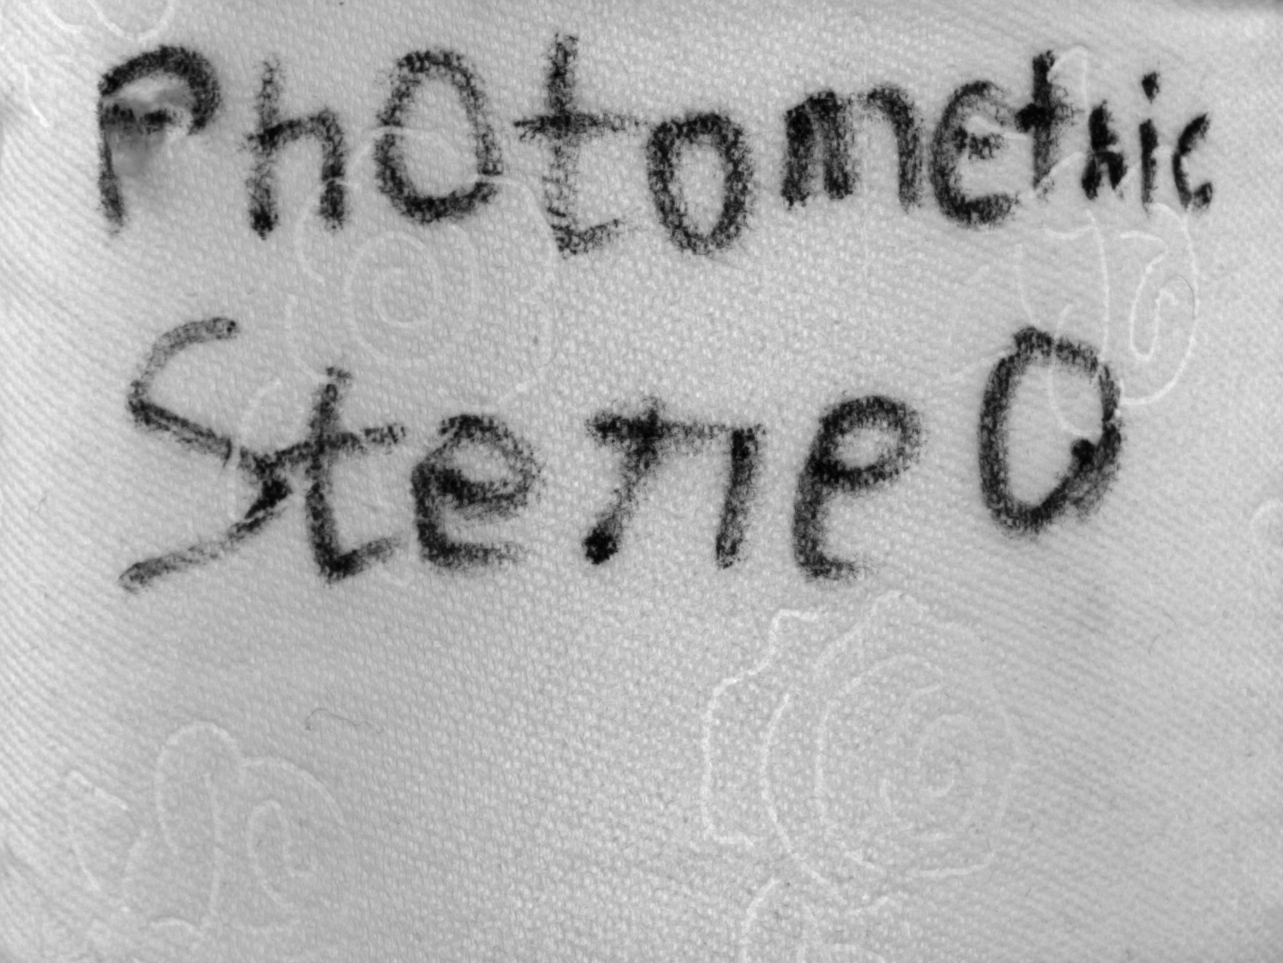 Photometric
Stereo